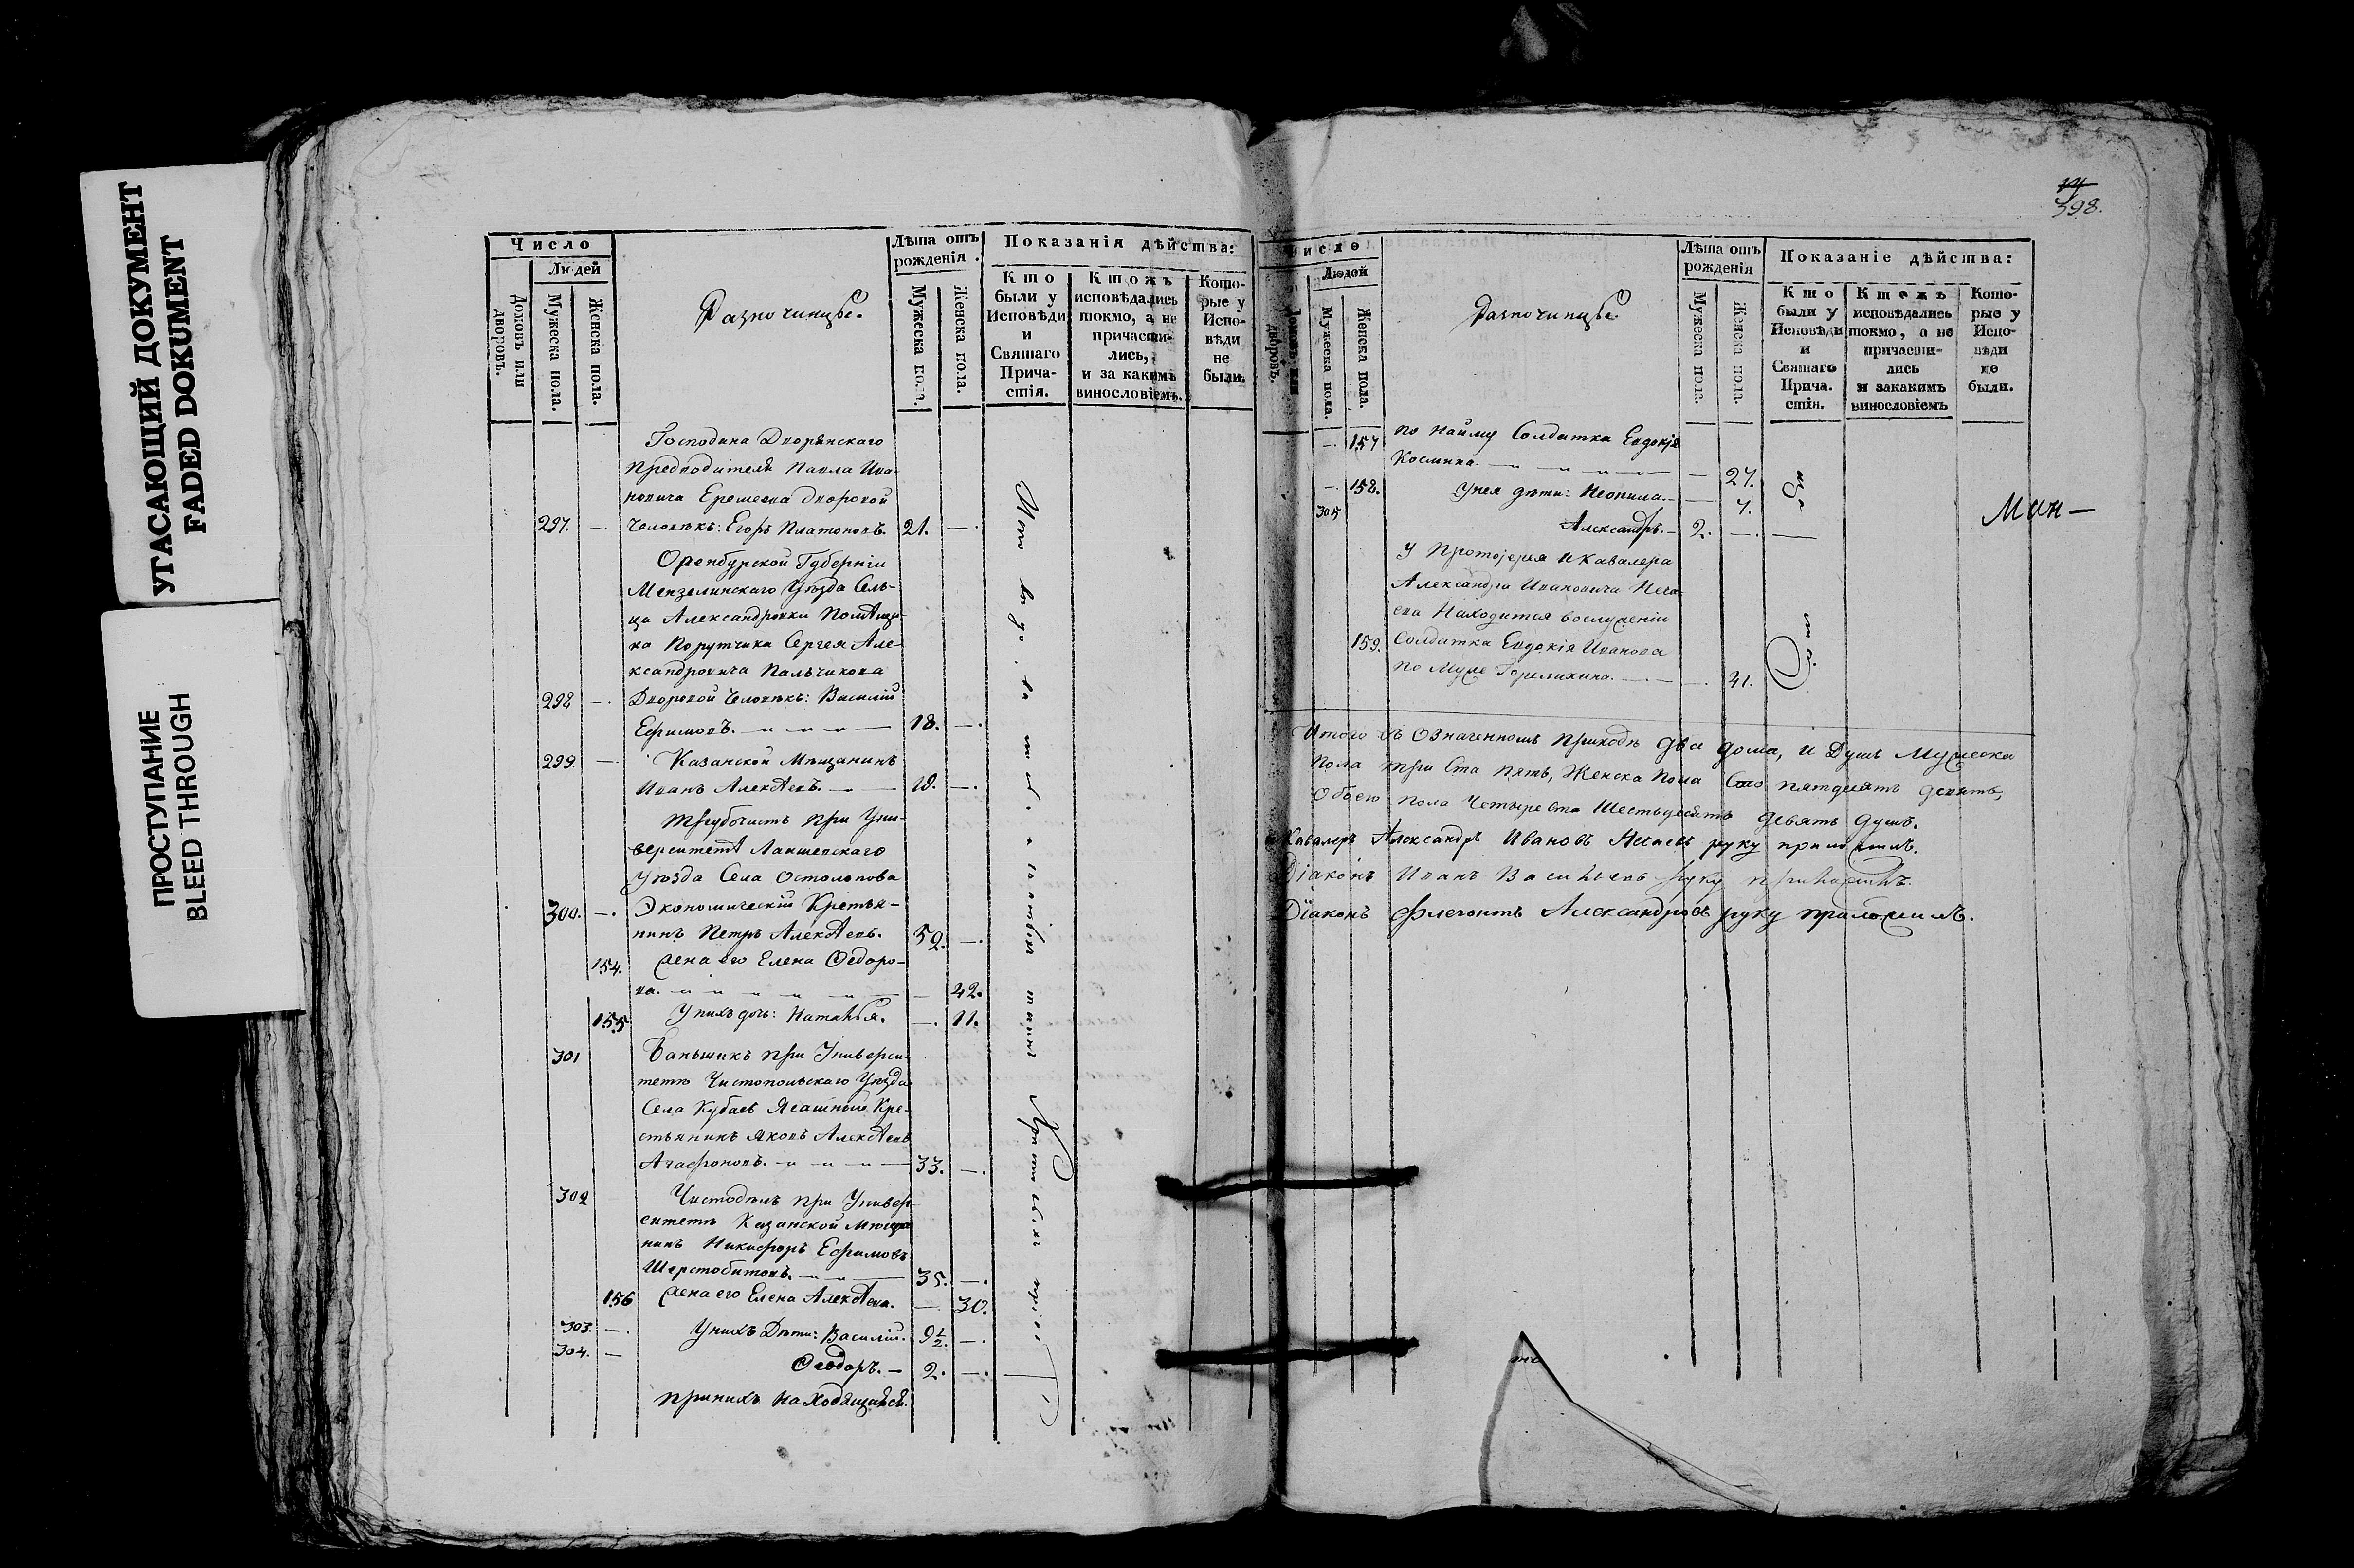 УГАСАЮЩИЙ ДОКУМЕНТ
FADED DOKUMENT
ПРОСТУПАНИЕ
BLEED THROUGH
Число
Людей
Домовъ или дворовъ.
Мужеска пола.
Женска пола.
Разночинцы.
Лѣта отъ рожденія.
Мужеска пола.
Женска пола.
Показанія дѣйства:
Кто были у Исповѣди и Святаго Прича-стія.
Ктожъ исповѣдались токмо, а не причасти-лись, и за какимъ винословіемъ.
Кото-рые у Испо-вѣди не были.
Господина Дворянскаго
Предводителя Павла Ива-
новича Еремеева дворовой
297. — человѣкъ: Егоръ Платоновъ. 21. —.
Оренбурской Губерніи
Мензелинскаго Уѣзда Сель-
ца Александровки Помѣщи-
ка Порутчика Сергея Але-
ксандровича Пальчикова
298 —. Дворовой человѣкъ: Василій
Ефимовъ. 18. —.
299. — Казанской Мѣщанинъ
Иванъ Алекѣевъ. 19. —.
Трубочистъ при Уни-
верситетѣ Лаишевскаго
Уѣзда Села Остолопова
300. —. Экономическій Кретья-
нинъ Петръ Алекѣевъ. 52. —.
154. Жена его Елена Ѳедоро-
ва. — 42.
155 У нихъ дочь: Наталья. —. 11.
301 Баньшикъ при Универси-
тетѣ Чистопольскаго Уѣзда
Села Кубасъ Ясашный Кре-
стьянинъ Яковъ Алекѣевъ
Агафоновъ. 33. —.
302 Чистодѣлъ при Универ-
ситетѣ Казанской Мѣща
нинъ Никифоръ Ефимовъ
Шерстобитовъ. 35. —.
156 Жена его Елена Алекѣева. —. 30.
303. —. У нихъ Дѣти: Василій. 9½. —.
304. — Ѳеодоръ. — 2. —.
При нихъ находящаяся
398.
Число
Людей
Домовъ или дворовъ.
Мужеска пола.
Женска пола.
Разночинцы.
Лѣта отъ рожденія
Мужеска пола.
Женска пола.
Показаніе дѣйства:
Кто были у Исповѣди и Святаго Прича.стія.
Ктожъ исповѣдались токмо, а не причасти-лись и закакимъ винословіемъ
Кото-рые у Испо-вѣди не были.
—. 157 по найму Солдатка Евдокія
Космина. — 27.
—. 158. У нея дѣти: Неонила. — 7.
305 Александръ. — 2. —.
У Протоіерея и Кавалера
Александра Ивановича Неча
ева находится вослуженіи
159. Солдатка Евдокія Иванова
по муже Горелихина. —. 41.
Итого въ означенномъ приходѣ два дома, и Душъ Мужеска
пола три ста пять, Женска пола Сто пятдесятъ девять,
обоего пола четыре ста шестьдесятъ девять душъ.
Кавалеръ Александръ Ивановъ Нечаевъ руку приложилъ.
Діаконъ Иванъ Васильевъ руку приложилъ.
Діаконъ Флегонтъ Александровъ руку приложилъ.